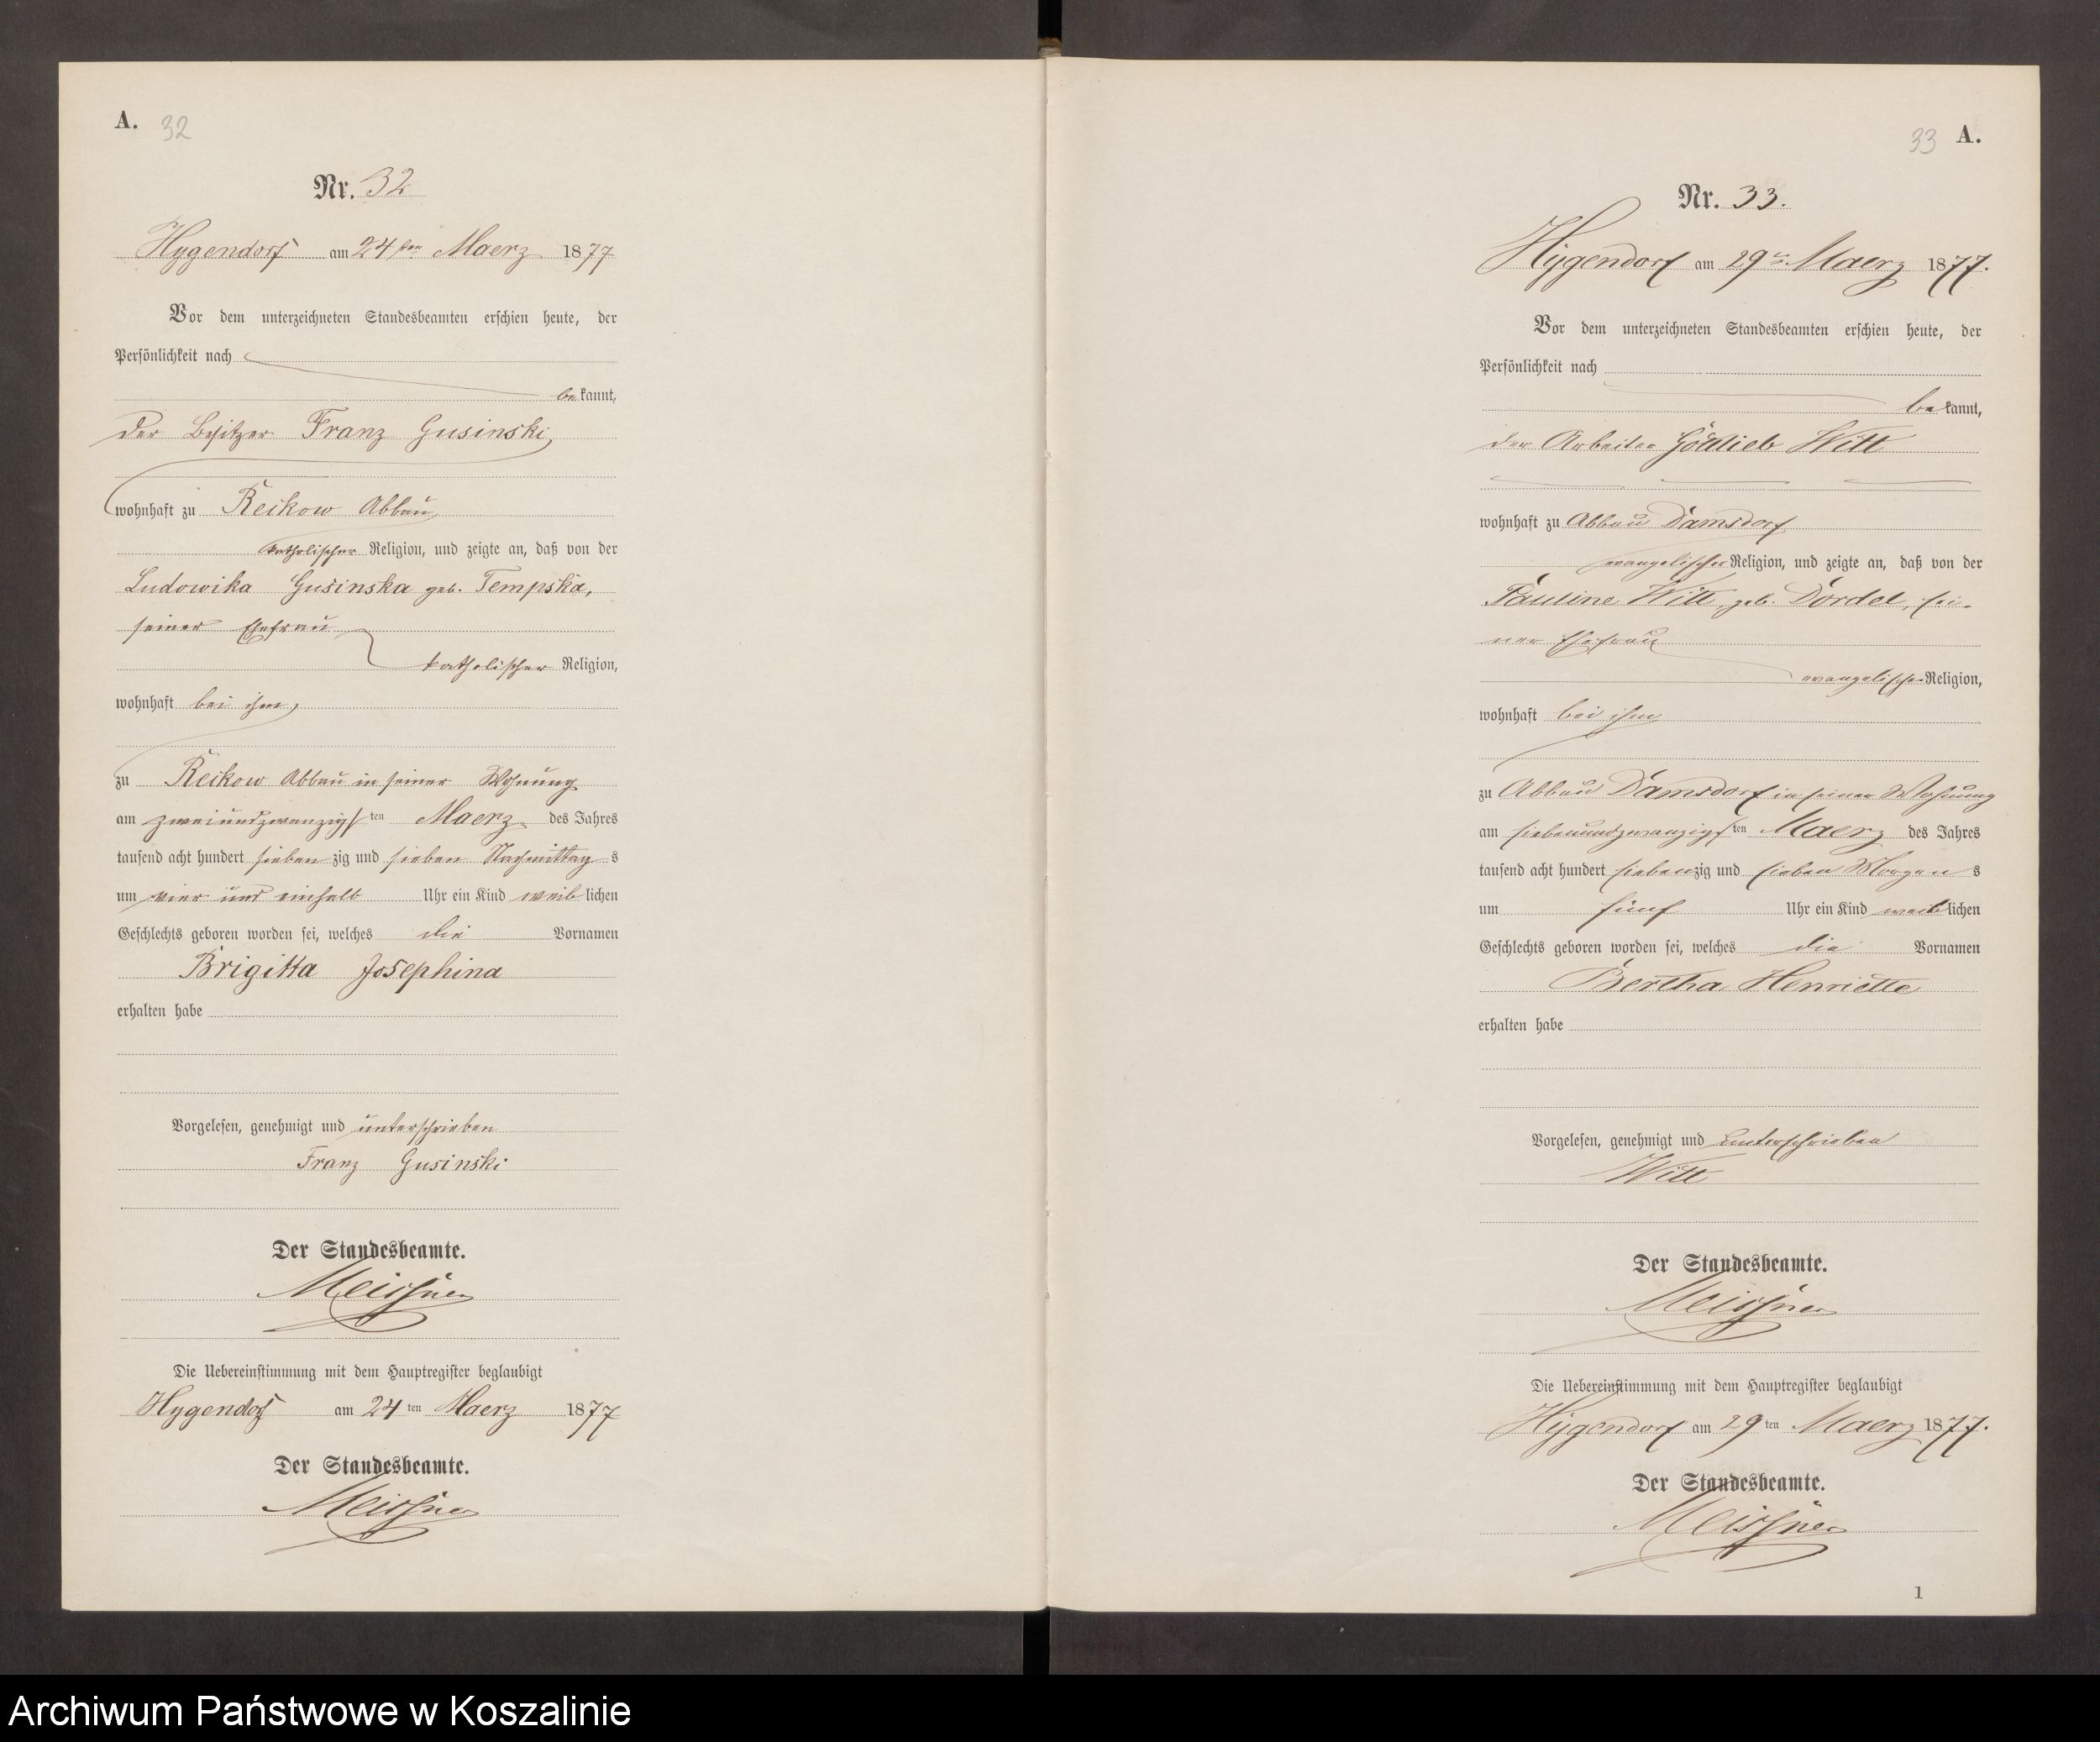 A. 32
Nr. 32
Hygendorf am 24ten Maerz 1877
Vor dem unterzeichneten Standesbeamten erschien heute, der
Persönlichkeit nach
bekannt,
der Besitzer Franz Gusinski,
wohnhaft zu Reikow Abbau,
katholischer Religion, und zeigte an, daß von der
Ludowika Gusinska geb. Tempska,
seiner Ehefrau
katholischer Religion,
wohnhaft bei ihm,
zu Reikow Abbau in seiner Wohnung
am zweiundzwanzigsten Maerz des Jahres
tausend acht hundert siebenzig und sieben Nachmittags
um vier und einhalb Uhr ein Kind weiblichen
Geschlechts geboren worden sei, welches die Vornamen
Brigitta Josephina
erhalten habe
Vorgelesen, genehmigt und unterschrieben
Franz Gusinski
Der Standesbeamte.
Meissner
Die Uebereinstimmung mit dem Hauptregister beglaubigt
Hygendorf am 24ten Maerz 1877
Der Standesbeamte.
Meissner
33 A.
Nr. 33.
Hygendorf am 29 Maerz 1877.
Vor dem unterzeichneten Standesbeamten erschien heute, der
Persönlichkeit nach
bekannt,
der Arbeiter Gottlieb Witt
wohnhaft zu Abbau Damsdorf
evangelischer Religion, und zeigte an, daß von der
Pauline Witt, geb. Dordel, sei-
ner Ehefrau
evangelischer Religion,
wohnhaft bei ihm
zu Abbau Damsdorf in seiner Wohnung
am siebenundzwanzigsten Maerz des Jahres
tausend acht hundert siebenzig und sieben Morgens
um fünf Uhr ein Kind weiblichen
Geschlechts geboren worden sei, welches die Vornamen
Bertha Henriette
erhalten habe
Vorgelesen, genehmigt und unterschrieben
Witt
Der Standesbeamte.
Meissner
Die Uebereinstimmung mit dem Hauptregister beglaubigt
Hygendorf am 29ten Maerz 1877.
Der Standesbeamte.
Meissner
1
Archiwum Państwowe w Koszalinie